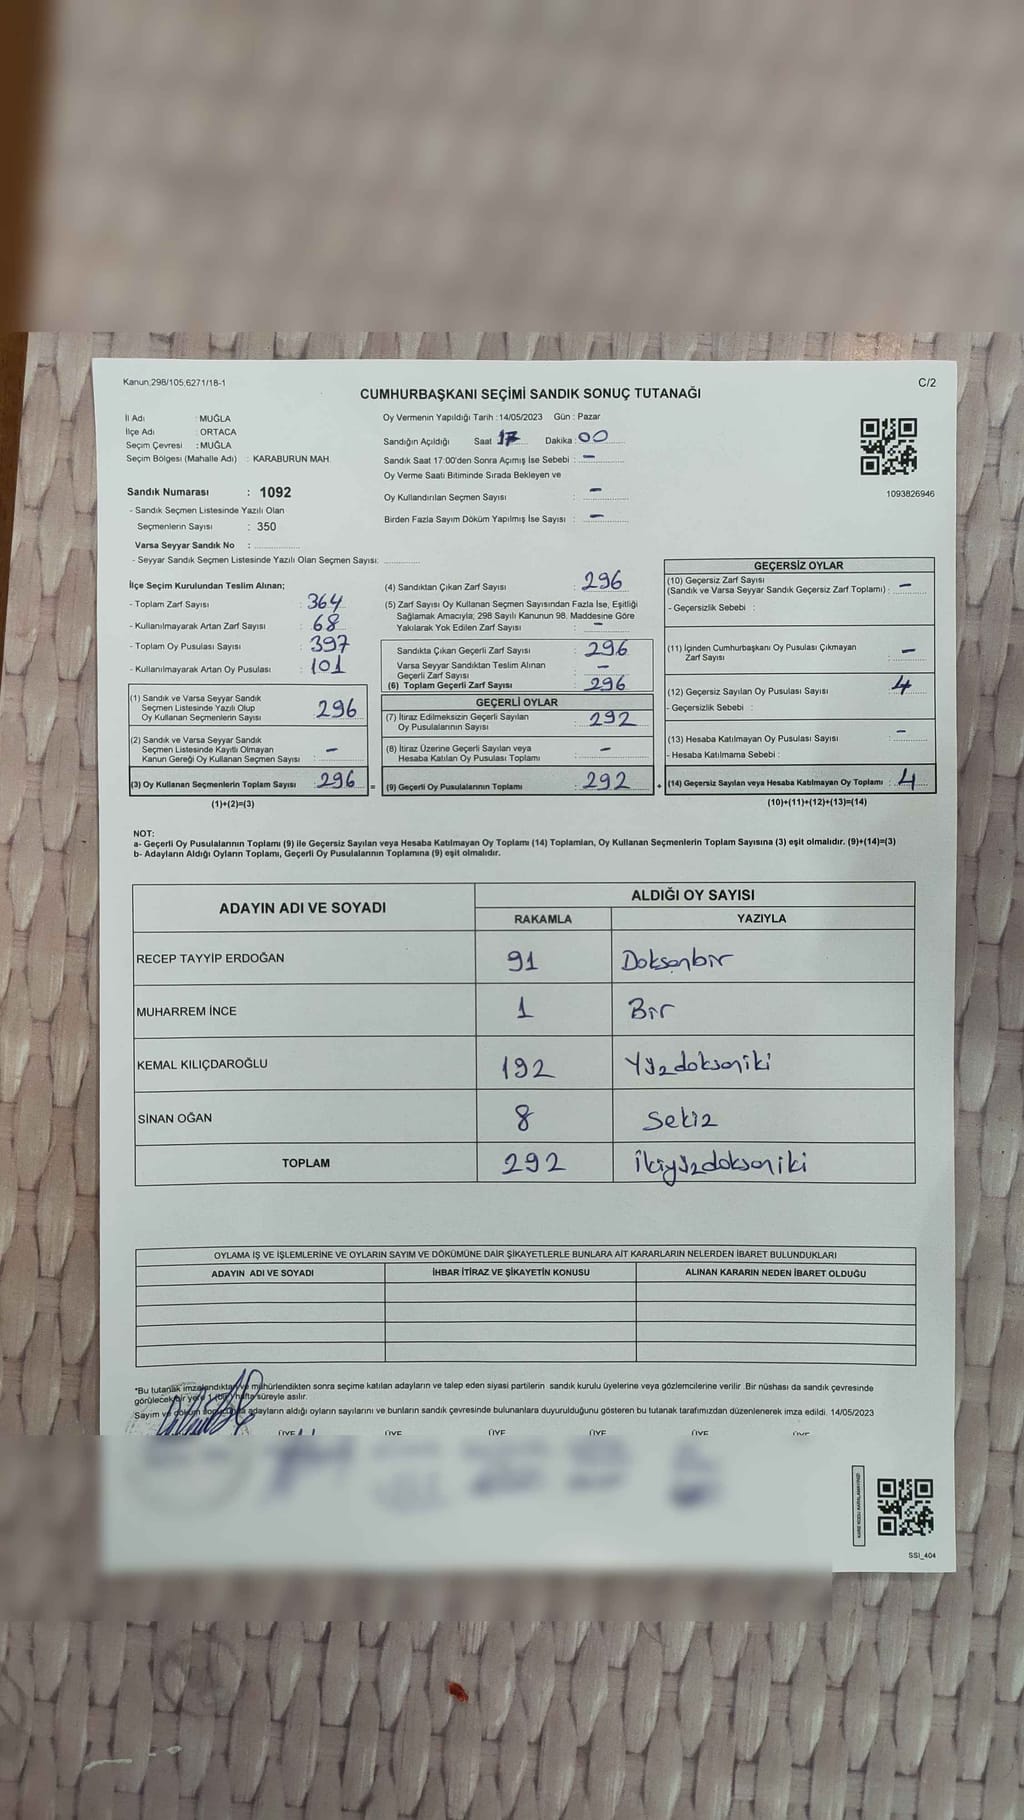 Kanun;298/105;6271/18-1
C/2
CUMHURBAŞKANI SEÇİMİ SANDIK SONUÇ TUTANAĞI
İl Adı : MUĞLA
İlçe Adı : ORTACA
Seçim Çevresi : MUĞLA
Seçim Bölgesi (Mahalle Adı) : KARABURUN MAH.
Oy Vermenin Yapıldığı Tarih :14/05/2023 Gün : Pazar
Sandığın Açıldığı Saat 17 Dakika : 00
Sandık Saat 17:00'den Sonra Açımış İse Sebebi : -
Oy Verme Saati Bitiminde Sırada Bekleyen ve
Oy Kullandırılan Seçmen Sayısı : -
Birden Fazla Sayım Döküm Yapılmış İse Sayısı : -
1093826946
Sandık Numarası : 1092
- Sandık Seçmen Listesinde Yazılı Olan
Seçmenlerin Sayısı : 350
Varsa Seyyar Sandık No :
- Seyyar Sandık Seçmen Listesinde Yazılı Olan Seçmen Sayısı:
İlçe Seçim Kurulundan Teslim Alınan;
- Toplam Zarf Sayısı : 364
- Kullanılmayarak Artan Zarf Sayısı : 68
- Toplam Oy Pusulası Sayısı : 397
- Kullanılmayarak Artan Oy Pusulası : 101
(1) Sandık ve Varsa Seyyar Sandık
Seçmen Listesinde Yazılı Olup
Oy Kullanan Seçmenlerin Sayısı : 296
(2) Sandık ve Varsa Seyyar Sandık
Seçmen Listesinde Kayıtlı Olmayan
Kanun Gereği Oy Kullanan Seçmen Sayısı : -
(3) Oy Kullanan Seçmenlerin Toplam Sayısı : 296 =
(1)+(2)=(3)
(4) Sandıktan Çıkan Zarf Sayısı : 296
(5) Zarf Sayısı Oy Kullanan Seçmen Sayısından Fazla İse, Eşitliği
Sağlamak Amacıyla; 298 Sayılı Kanunun 98. Maddesine Göre
Yakılarak Yok Edilen Zarf Sayısı : -
Sandıkta Çıkan Geçerli Zarf Sayısı : 296
Varsa Seyyar Sandıktan Teslim Alınan
Geçerli Zarf Sayısı : -
(6) Toplam Geçerli Zarf Sayısı : 296
GEÇERLİ OYLAR
(7) İtiraz Edilmeksizin Geçerli Sayılan
Oy Pusulalarının Sayısı : 292
(8) İtiraz Üzerine Geçerli Sayılan veya
Hesaba Katılan Oy Pusulası Toplamı : -
(9) Geçerli Oy Pusulalarının Toplamı : 292 +
GEÇERSİZ OYLAR
(10) Geçersiz Zarf Sayısı
(Sandık ve Varsa Seyyar Sandık Geçersiz Zarf Toplamı) : -
- Geçersizlik Sebebi :
(11) İçinden Cumhurbaşkanı Oy Pusulası Çıkmayan
Zarf Sayısı : -
(12) Geçersiz Sayılan Oy Pusulası Sayısı : 4
- Geçersizlik Sebebi :
(13) Hesaba Katılmayan Oy Pusulası Sayısı : -
- Hesaba Katılmama Sebebi :
(14) Geçersiz Sayılan veya Hesaba Katılmayan Oy Toplamı : 4
(10)+(11)+(12)+(13)=(14)
NOT:
a- Geçerli Oy Pusulalarının Toplamı (9) ile Geçersiz Sayılan veya Hesaba Katılmayan Oy Toplamı (14) Toplamları, Oy Kullanan Seçmenlerin Toplam Sayısına (3) eşit olmalıdır. (9)+(14)=(3)
b- Adayların Aldığı Oyların Toplamı, Geçerli Oy Pusulalarının Toplamına (9) eşit olmalıdır.
ADAYIN ADI VE SOYADI
ALDIĞI OY SAYISI
RAKAMLA YAZIYLA
RECEP TAYYİP ERDOĞAN 91 Doksanbir
MUHARREM İNCE 1 Bir
KEMAL KILIÇDAROĞLU 192 Yüzdoksaniki
SİNAN OĞAN 8 Sekiz
TOPLAM 292 İkiyüzdoksaniki
OYLAMA İŞ VE İŞLEMLERİNE VE OYLARIN SAYIM VE DÖKÜMÜNE DAİR ŞİKAYETLERLE BUNLARA AİT KARARLARIN NELERDEN İBARET BULUNDUKLARI
ADAYIN ADI VE SOYADI İHBAR İTİRAZ VE ŞİKAYETİN KONUSU ALINAN KARARIN NEDEN İBARET OLDUĞU
*Bu tutanak imzalandıktan ve mühürlendikten sonra seçime katılan adayların ve talep eden siyasi partilerin sandık kurulu üyelerine veya gözlemcilerine verilir. Bir nüshası da sandık çevresinde
görülecek bir yere 1 (bir) hafta süreyle asılır.
Sayım ve döküm adayların aldığı oyların sayılarını ve bunların sandık çevresinde bulunanlara duyurulduğunu gösteren bu tutanak tarafımızdan düzenlenerek imza edildi. 14/05/2023
ÜYE ÜYE ÜYE ÜYE ÜYE ÜYE
SSİ_404